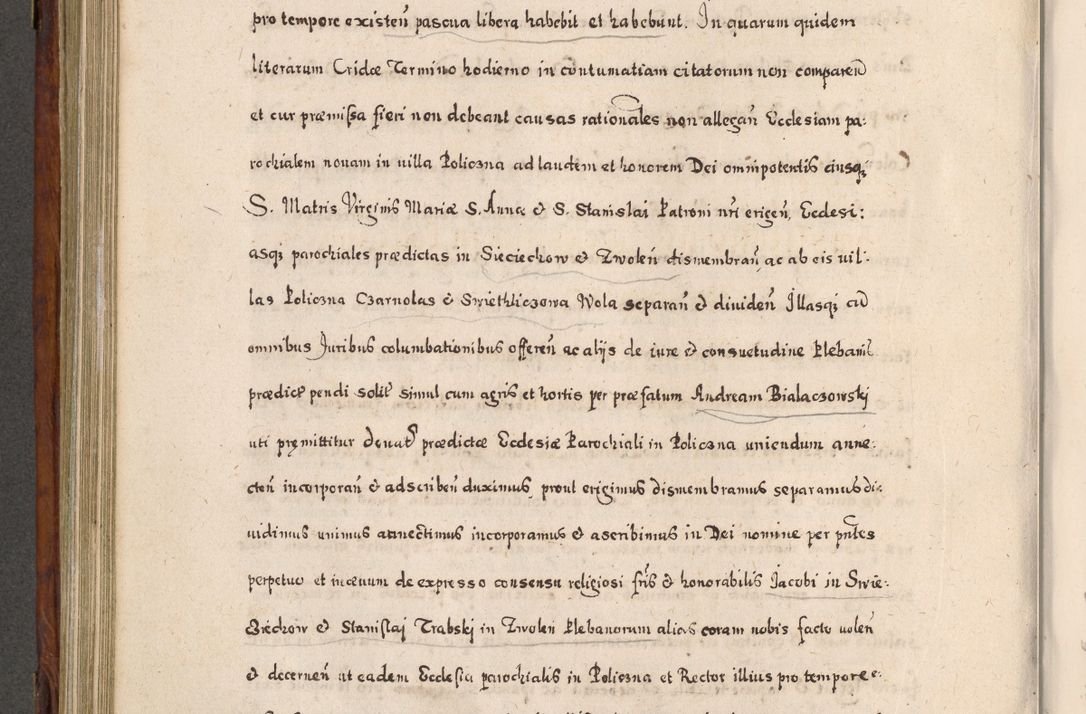 pro tempore existeñ pascua libera habebit et habebunt. In quarum quidem
literarum Cridæ Termino hodierno in cõntumatiam citatorum non compareñ
et cur præmissa fieri non debeant causas rationales non allegañ Ecclesiam pa:
rochialem nouam in uilla Policzna ad laudem et honorem Dei omnipotentis eiusqz
S. Matris Virginis Mariæ S. Annæ & S. Stanislai Patroni nrĩ erigeñ, Ecclesi:
asqz parochiales prædictas in Sieciechow & Zwoleń dismembrañ ac ab eis uil:
las Policzna Czarnolas & Swiethliczowa Wola separañ & diuideñ Illasqz cũ
omnibus Iuribus columbationibus offereñ ac alijs de iure & consuetudine Plebanis
prædict pendi solit simul cum agris et hortis per præfatum Andream Bialaczowskj
uti pręmittitur donat prædictæ Ecclesiæ Parochiali in Policzna uniendum anne:
cteñ incorporañ & adscribeñ duximus, prout erigimus dismembramus separamus di:
uidimus unimus annectimus incorporamus & ascribimus in Dei nomine per pñtes
perpetuo et in æuum de expresso consensu religiosi fris & honorabilis Jacobi in Swie:
ciechow & Stanislaj Trabskj in Zwolen Plebanorum alias coram nobis facto uoleñ
& decerneñ ut eadem Ecclesia parochialis in Policzna et Rector illius pro tempore e: